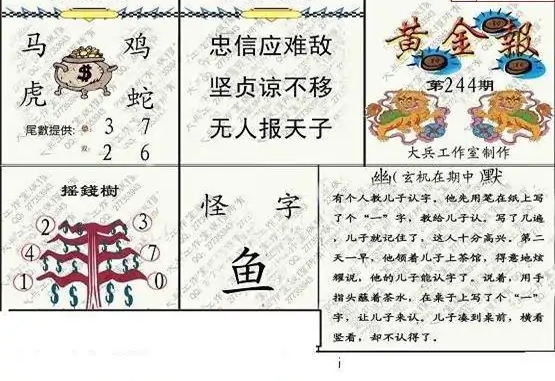 马 鸡
虎 蛇
尾數提供: 单 3 7
双 2 6
忠信应难敌
坚贞谅不移
无人报天子
黄金報
第244期
大兵工作室制作
摇錢樹
2 3
4 7
1 0
怪 字
鱼
幽(玄机在期中 默
有个人教儿子认字。他先用笔在纸上写
了个“一”字，教给儿子认。写了几遍
，儿子就记住了，这人十分高兴。第二
天一早，他领着儿子上茶馆，得意地炫
耀说，他的儿子能认字了。说着，用手
指头蘸着茶水，在桌子上写了个“一”
字，让儿子来认。儿子凑到桌前，横看
竖看，却不认得了。
i